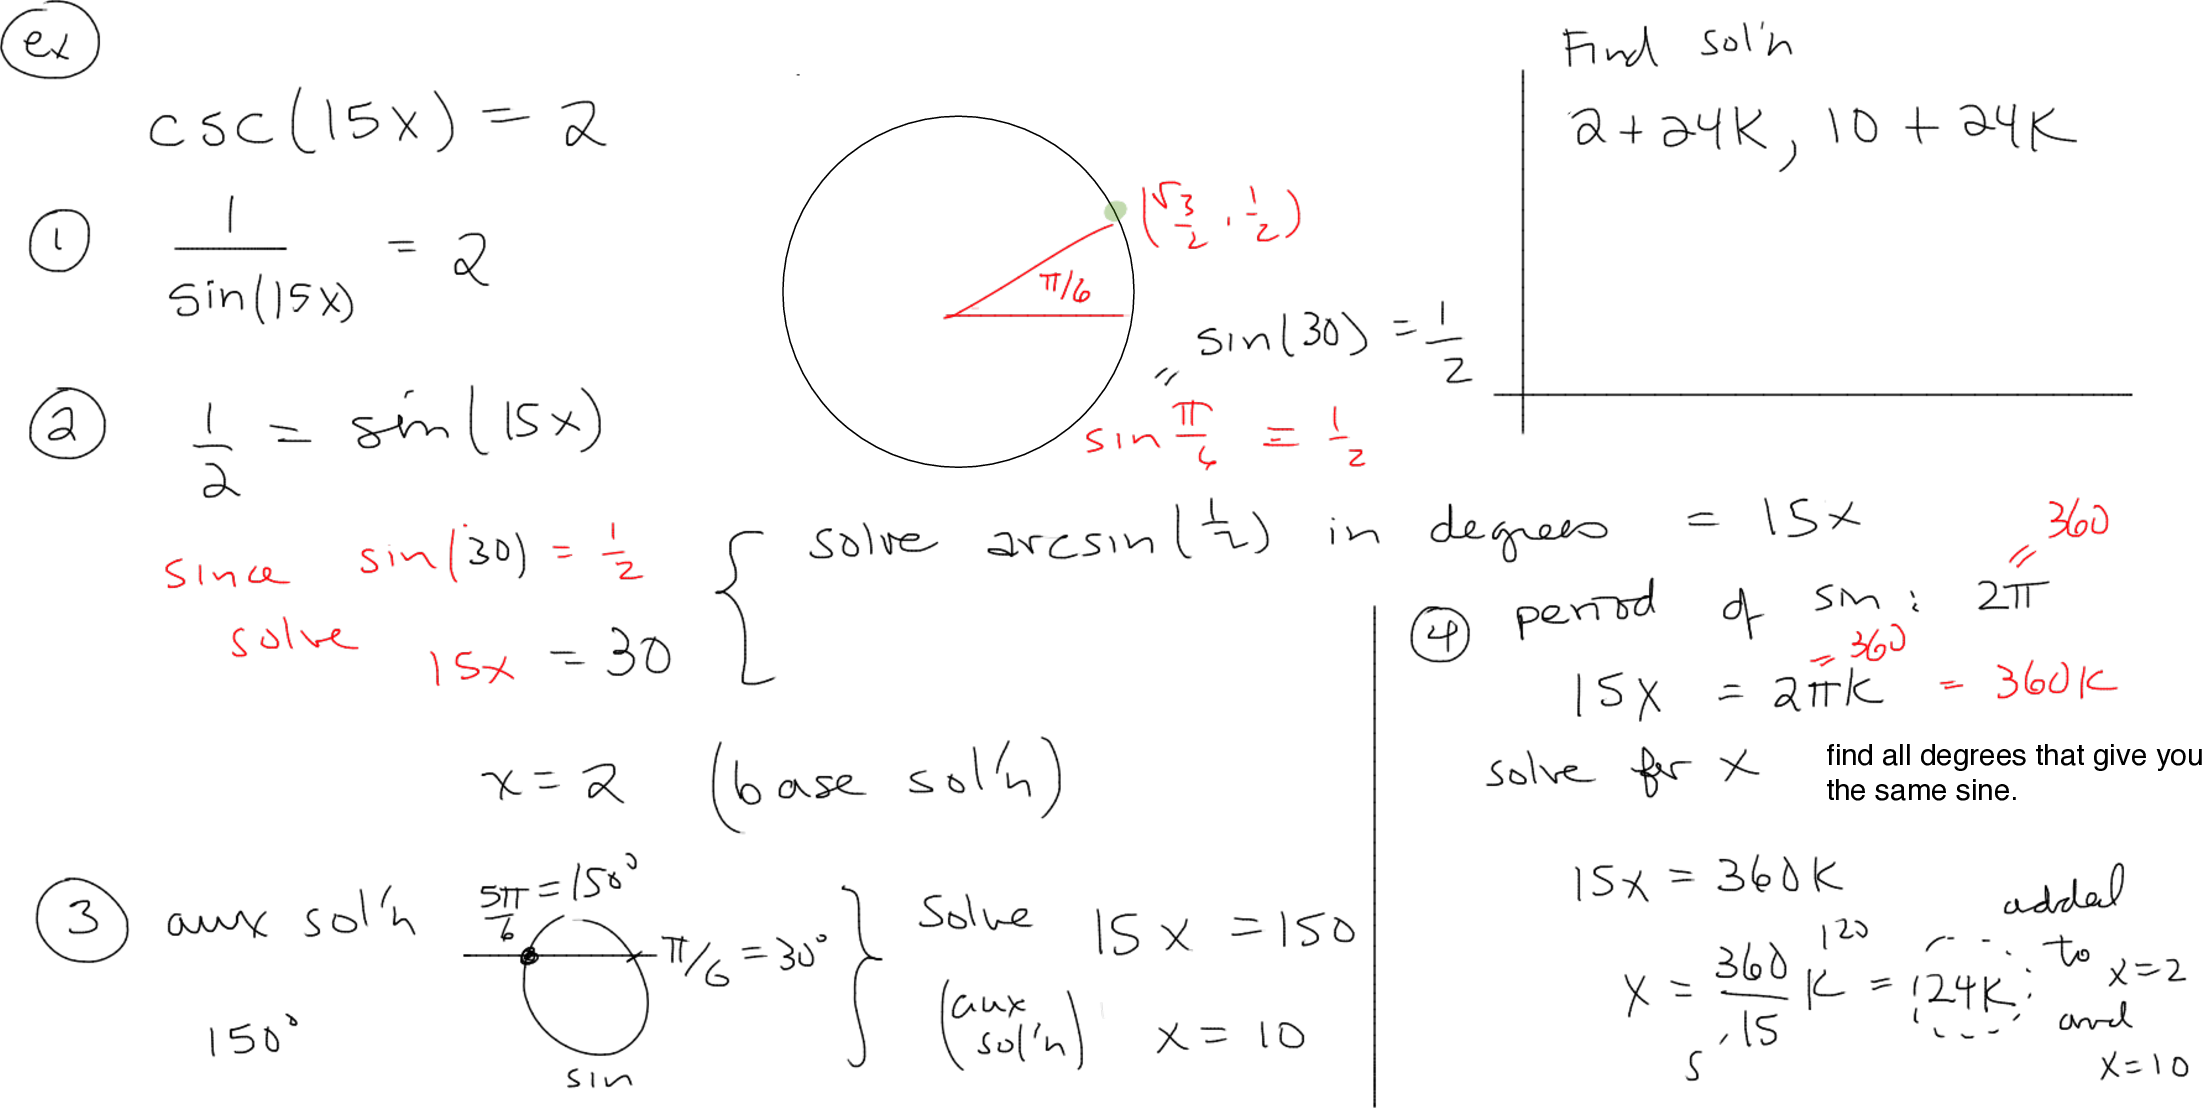 ex
csc(15x) = 2
① 1/sin(15x) = 2
② 1/2 = sin(15x)
since sin(30) = 1/2
solve 15x = 30
x = 2 (base sol'n)
(√3/2, 1/2)
π/6
sin(30) = 1/2
=
sin π/6 = 1/2
Find sol'n
2 + 24K, 10 + 24K
{ solve arcsin(1/2) in degrees = 15x
③ aux sol'n
150°
5π/6 = 150°
π/6 = 30°
sin
} solve 15x = 150
(aux sol'n) x = 10
④ period of sin: 2π = 360
15x = 2πK = 360K
= 360
solve for x
find all degrees that give you
the same sine.
15x = 360K
x = 360/15 K = 24K
120
5
added
to
x=2
and
x=10